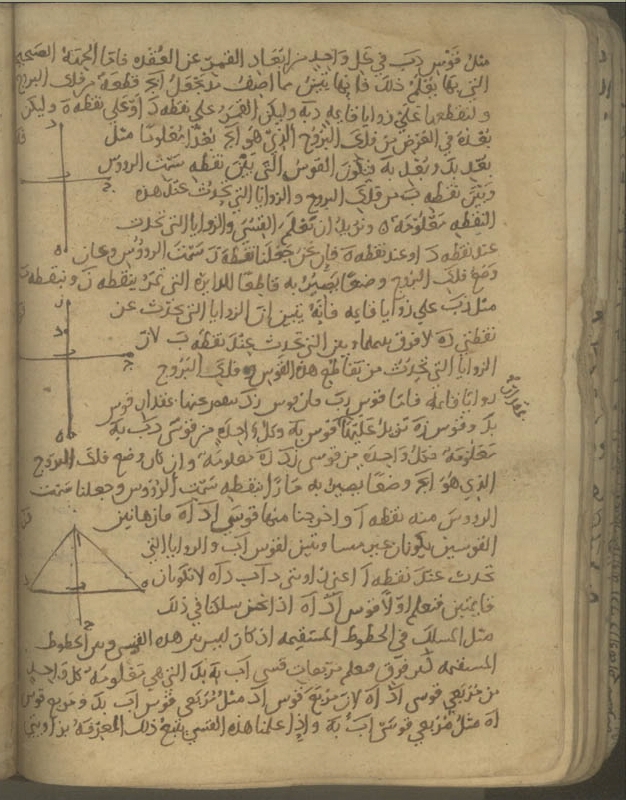 مثل قوس دب في كل واحد من ابعاد القمر عن العقده فاما الجهة الصحيحة
التي بها يعلم ذلك فانها تتبين مما اصف نجعل ا ج قطعة من فلك البروج
ولنقطعها على زوايا قايمه د به وليكن القمر على نقطه د او على نقطه ه وليكن
بعده في العرض من فلك البروج الذي هو ا ج بعدا معلوما مثل
بعد بد وبعد به وتكون القوس التي بين نقطه سمت الرووس
وبين نقطه ب من فلك البروج والزوايا التي تحدث عند هذه
النقطه معلومة ونريد ان نعلم القسي والزوايا التي تحدث
عند نقطه د او عند نقطه ه فان نحن جعلنا نقطة ز سمت الرووس وكان
وضع فلك البروج وضعا يصير به قاطعا للدايره التي تمر بنقطه ز وبنقطه ب
مثل زب على زوايا قايمه فانه يتبين ان الزوايا التي تحدث عن
نقطتي د ه لا فرق بينها وبين التي تحدث عند نقطه ب لان
الزوايا التي تحدث من تقاطع هذه القوس وفلك البروج
زوايا قايمه فاما قوس زب فان قوس زد تنقص عنها مقدار قوس
بد وقوس زه تزيد عليها قوس به وكل واحده من قوسي دب به
معلومة فكل واحده من قوسي زد زه معلومة وان كان وضع فلك البروج
الذي هو ا ج وضعا يصير به مارا بنقطه سمت الرووس وجعلنا سمت
الرووس منه نقطه ا واخرجنا منها قوسي اد اه فان هاتين
القوسين يكونان غير مساويتين لقوس اب والزوايا التي
تحدث عند نقطه ا اعني زاويتي داب داه لا تكونان
فنعلم اولا قوس اد اه اذا نحن سلكنا في ذلك
مثل المسلك في الخطوط المستقيمه اذ كان ليس بين هذه القسي وبين الخطوط
المستقيمه كبير فرق فنعلم مربعات قسي اب به بد التي هي معلومة كل واحد
من مربعي قوسي اد اه لان مربع قوس اد مثل مربعي قوس اب بد ومربع قوس
اه مثل مربعي قوسي اب به واذا علمنا هذه القسي يتبع ذلك المعرفة بزاويتي